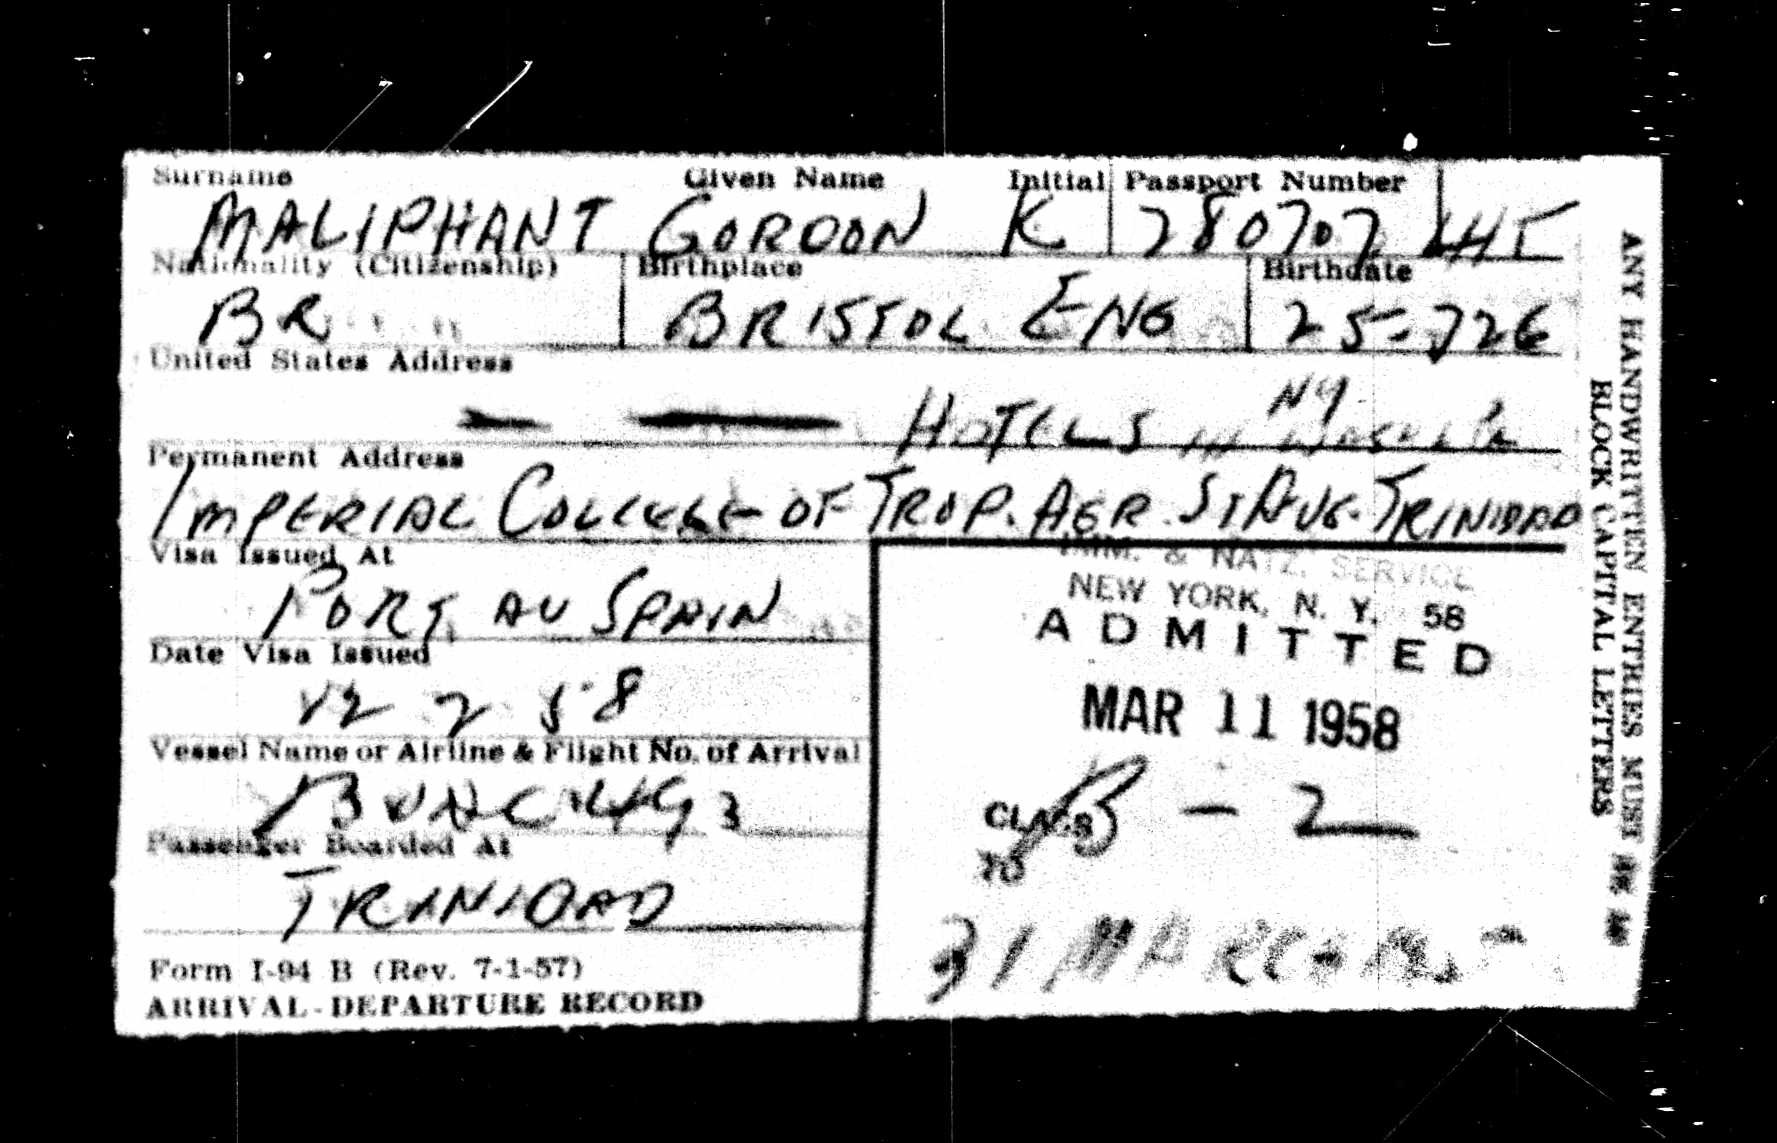 Surname Given Name Initial Passport Number
MALIPHANT GORDON K 280707
Nationality (Citizenship) Birthplace Birthdate
BR BRISTOL ENG 25-726
United States Address
HOTELS in NY
Permanent Address
IMPERIAL COLLEGE OF TROP. AGR. ST AUG. TRINIDAD
Visa Issued At
PORT AU SPAIN
Date Visa Issued
12 2 58
Vessel Name or Airline & Flight No. of Arrival
493
Passenger Boarded At
TRINIDAD
Form I-94 B (Rev. 7-1-57)
ARRIVAL-DEPARTURE RECORD
IMM. & NATZ. SERVICE
NEW YORK, N. Y. 58
ADMITTED
MAR 11 1958
CLASS B-2
TO
31 MARCH
ANY HANDWRITTEN ENTRIES MUST BE IN
BLOCK CAPITAL LETTERS